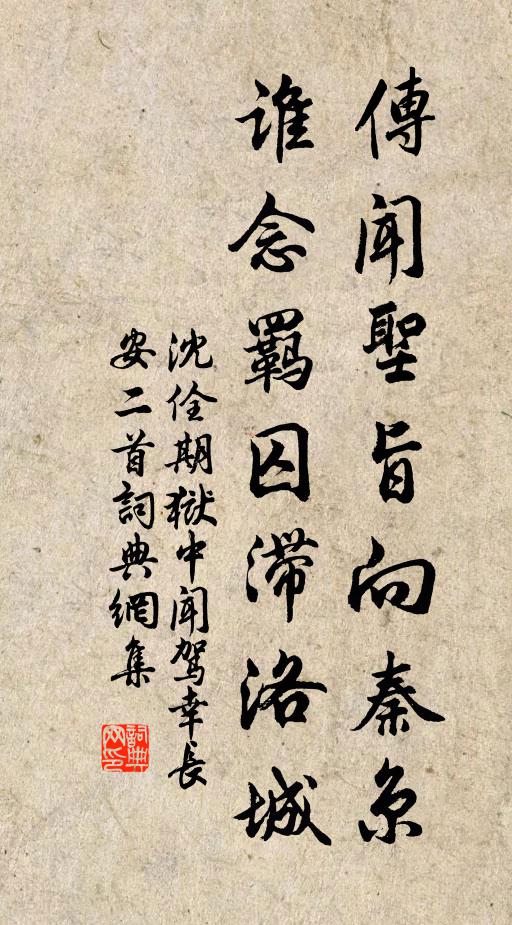 傳聞聖旨向秦京
誰念羈囚滯洛城
沈佺期獄中聞駕幸長
安二首詞典網集
詞典
网印